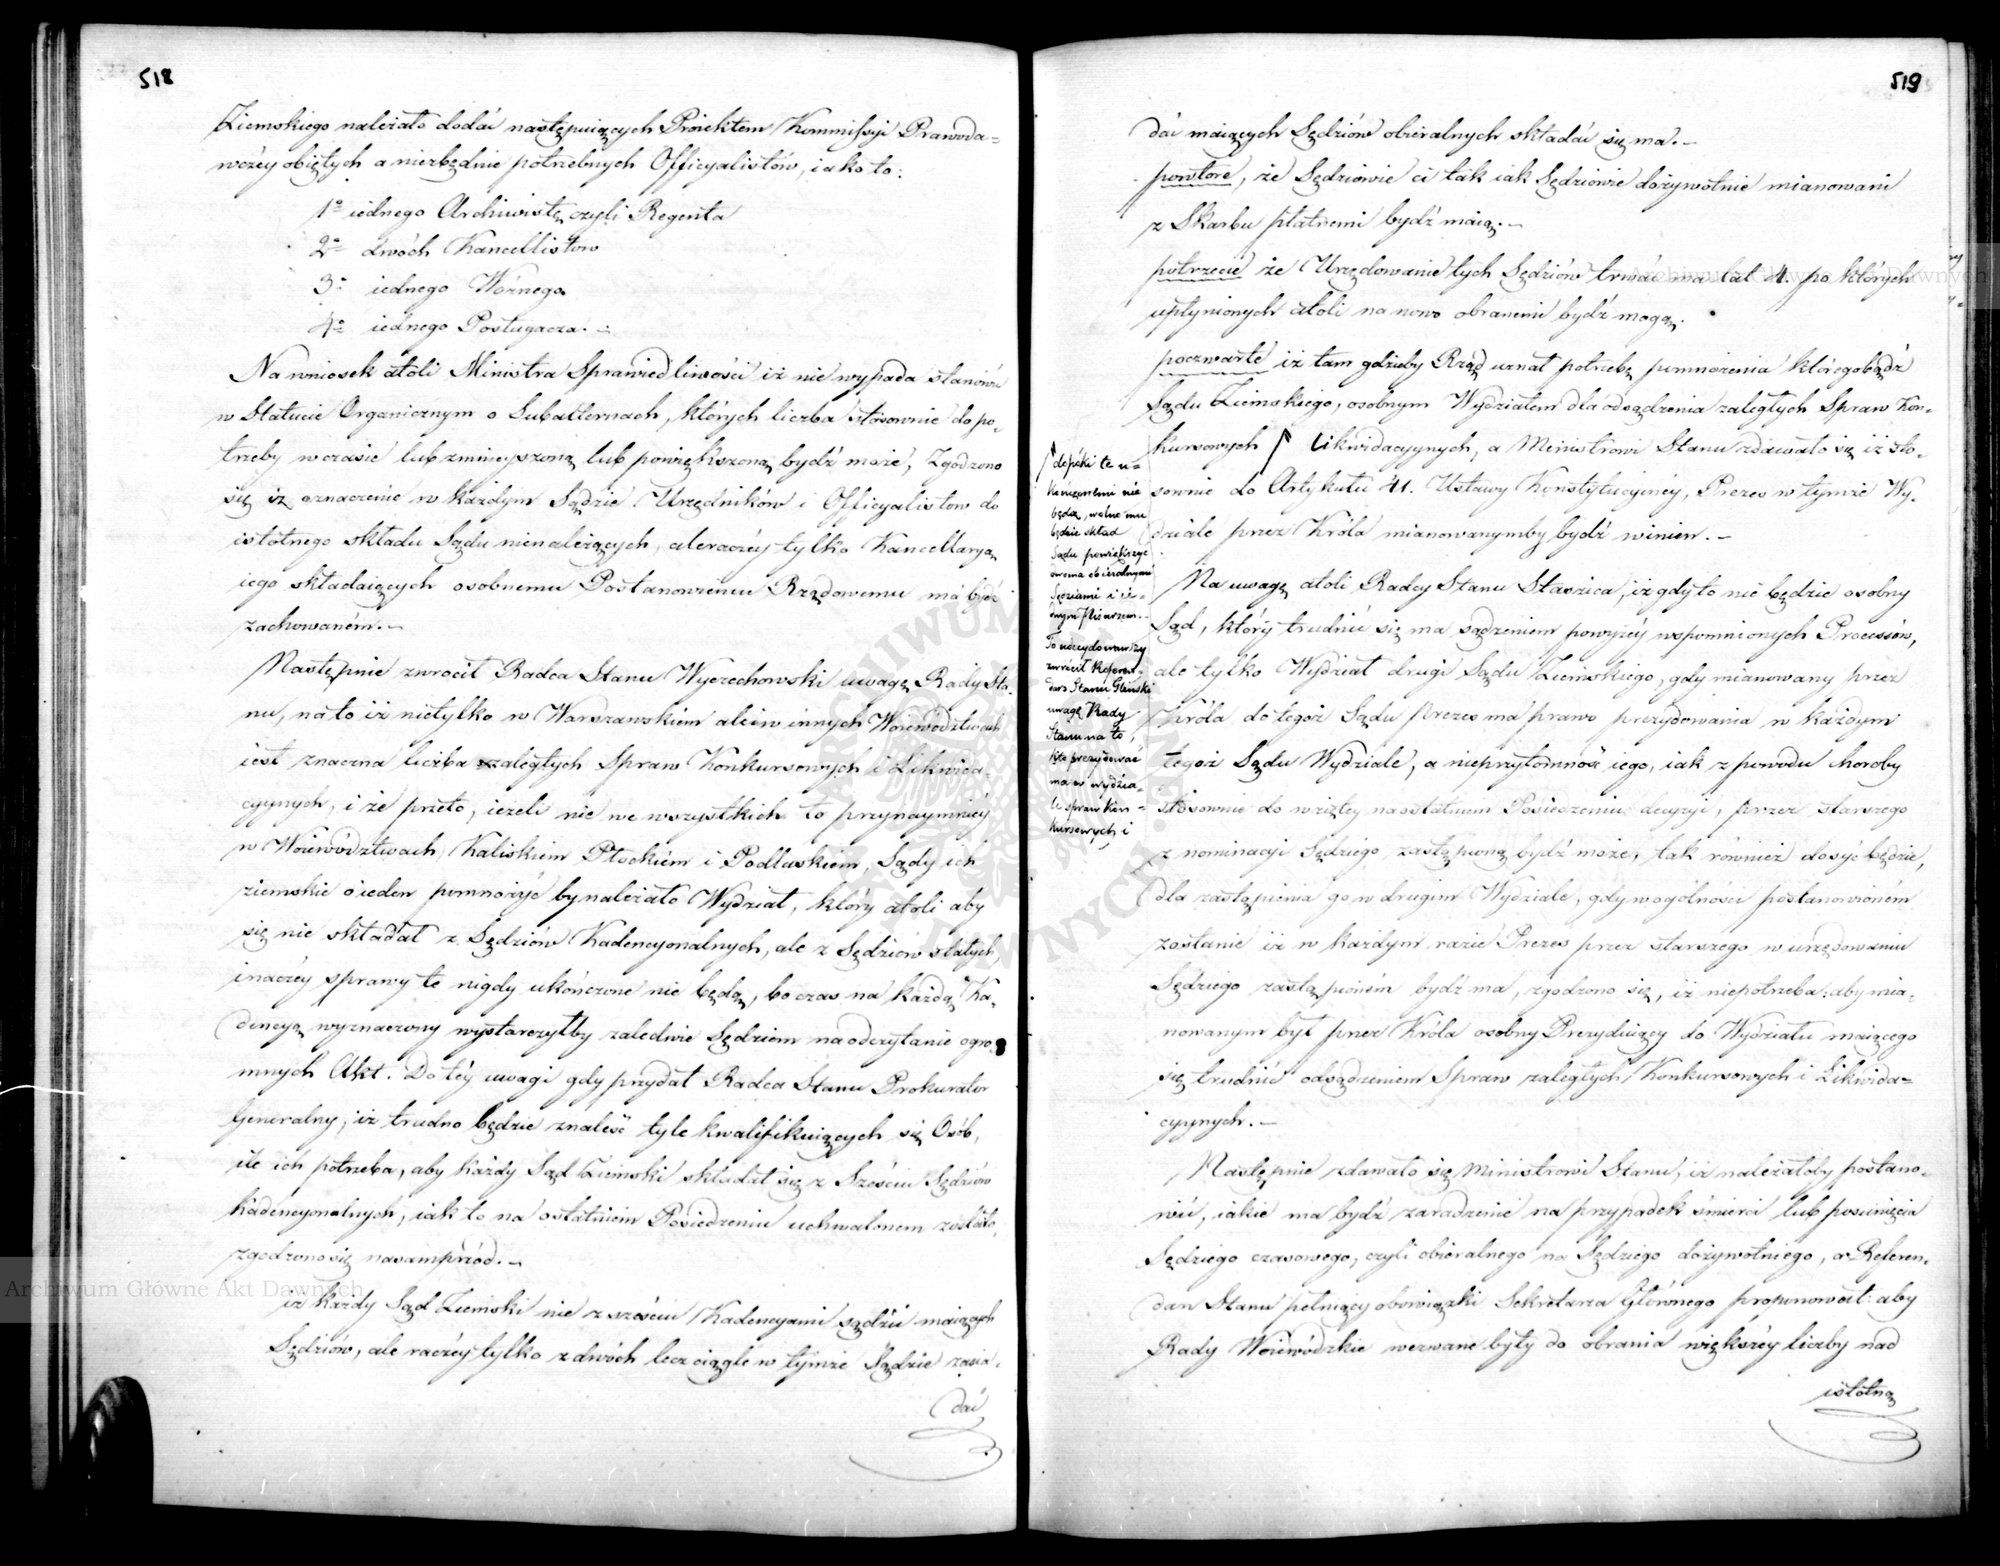 518
Ziemskiego należało dodać następuiących Proiektem Kommissyi Prawoda=
wczéy obiętych a niezbędnie potrzebnych Officyalistów, iako to:
1o iednego Archiwistę czyli Regenta
2o dwóch Kancellistow
3o iednego Woźnego
4o iednego Posługacza. –
Na wniosek atoli Ministra Sprawiedliwości iż nie wypada stanowić
w Statucie Organicznym o Subalternach, których liczba stosownie do po=
trzeby w czasie lub zmnieyszoną lub powiększoną bydź może, Zgodzono
się iż oznaczenie w każdym Sądzie Urzędników i Officyalistow do
istotnego składu Sądu nienależących, aleraczéy tylko Kancellaryą
iego składaiących osobnemu Postanowieniu Rządowemu ma być
zachowaném. –
Następnie zwrócił Radca Stanu Wyczechowski uwagę Rady Sta=
nu, na to iż nietylko w Warszawskiém ale i w innych Woiewództwach
iest znaczna liczba zaległych Spraw Konkursowych i Likwida=
cyynych, i że przeto, ieżeli nie we wszystkich to przynaymniéy
w Woiewództwach Kaliskiém Płockiém i Podlaskiém, Sądy ich
ziemskie o ieden pomnożyć by należało Wydział, który atoli aby
się nie składał z Sędziów Kadencyonalnych, ale z Sędziów stałych,
inaczéy sprawy te nigdy ukończone nie będą, bo czas na każdą Ka=
dencyą wyznaczony wystarczyłby zaledwie Sędziom na odczytanie ogro=
mnych Akt. Do téy uwagi gdy przydał Radca Stanu Prokurator
Generalny, iż trudno będzie znaleść tyle kwalifikuiących się Osób,
ile ich potrzeba, aby każdy Sąd Ziemski składał się z Sześciu Sędziów
Kadencyonalnych, iak to na ostatniém Posiedzeniu uchwalonem zostało,
zgodzono się nasamprzód. –
iż każdy Sąd Ziemski nie z sześciu Kadencyami sądzić maiących
Sędziów, ale raczéy tylko z dwóch lecz ciągle w tymże Sądzie zasia=
dać
519
dać maiących Sędziów obieralnych składać się ma. –
powtóre, że Sędziowie ci tak iak Sędziowie dożywotnie mianowani
z Skarbu płatnemi bydź maią. –
potrzecie że Urzędowanie tych Sędziów trwać ma lat 4. po których
upłynionych atoli na nowo obranemi bydź mogą.
poczwarte iż tam gdzieby Rząd uznał potrzebę pomnożenia któregobądź
Sądu Ziemskiego, osobnym Wydziałem dla odsądzenia zaległych Spraw Kon=
kursowych / Likwidacyynych, a Ministrowi Stanu zdawało się iż sto=
sownie do Artykułu 41. Ustawy Konstytucyinéy, Prezes w tymże Wy=
dziale przez Króla mianowanymby bydź winien. –
/ dopóki te u=
kończonemi nie
będą, wolno mu
będzie skład
Sądu powiększyć
dwoma obieralnymi
Sędziami i ie=
dnym Pisarzem. –
To zdecydowawszy
zwrócił Referen=
darz Stanu Gliński
uwagę Rady
Stanu na to,
kto prezydować
ma w wydzia=
le spraw Kon=
kursowych i
Na uwagę atoli Radcy Stanu Staszica, iż gdy to nie będzie osobny
Sąd, który trudnić się ma sądzeniem powyżéy wspomnionych Processów,
ale tylko Wydział drugi Sądu Ziemskiego, gdy mianowany przez
Króla do tegoż Sądu Prezes ma prawo prezydowania w każdym
tegoż Sądu Wydziale, a nieprzytomność iego, iak z powodu choroby
stosownie do wziętey na ostatniem Posiedzeniu decyzyi, przez starszego
z nominacyi Sędziego zastąpioną bydź może, tak również dosyć będzie,
dla zastąpienia go w drugim Wydziale, gdy wogólności postanowioném
zostanie iż w każdym razie Prezes przez starszego w urzędowaniu
Sędziego zastąpioném bydź ma, zgodzono się, iż niepotrzeba: aby mia=
nowanym był przez Króla osobny Prezyduiący do Wydziału maiącego
się trudnić odsądzeniem Spraw zaległych Konkursowych i Likwida=
cyynych. –
Następnie zdawało się Ministrowi Stanu, iż należałoby postano=
wić, iakie ma bydź zaradzenie na przypadek śmierci lub posunięcia
Sędziego czasowego, czyli obieralnego na Sędziego dożywotniego, a Referen=
darz Stanu pełniący obowiązki Sekretarza Głównego proponował: aby
Rady Woiewódzkie wezwane były do obrania większéy liczby nad
istotną
Archiwum Główne Akt Dawnych
Archiwum Główne Akt Dawnych